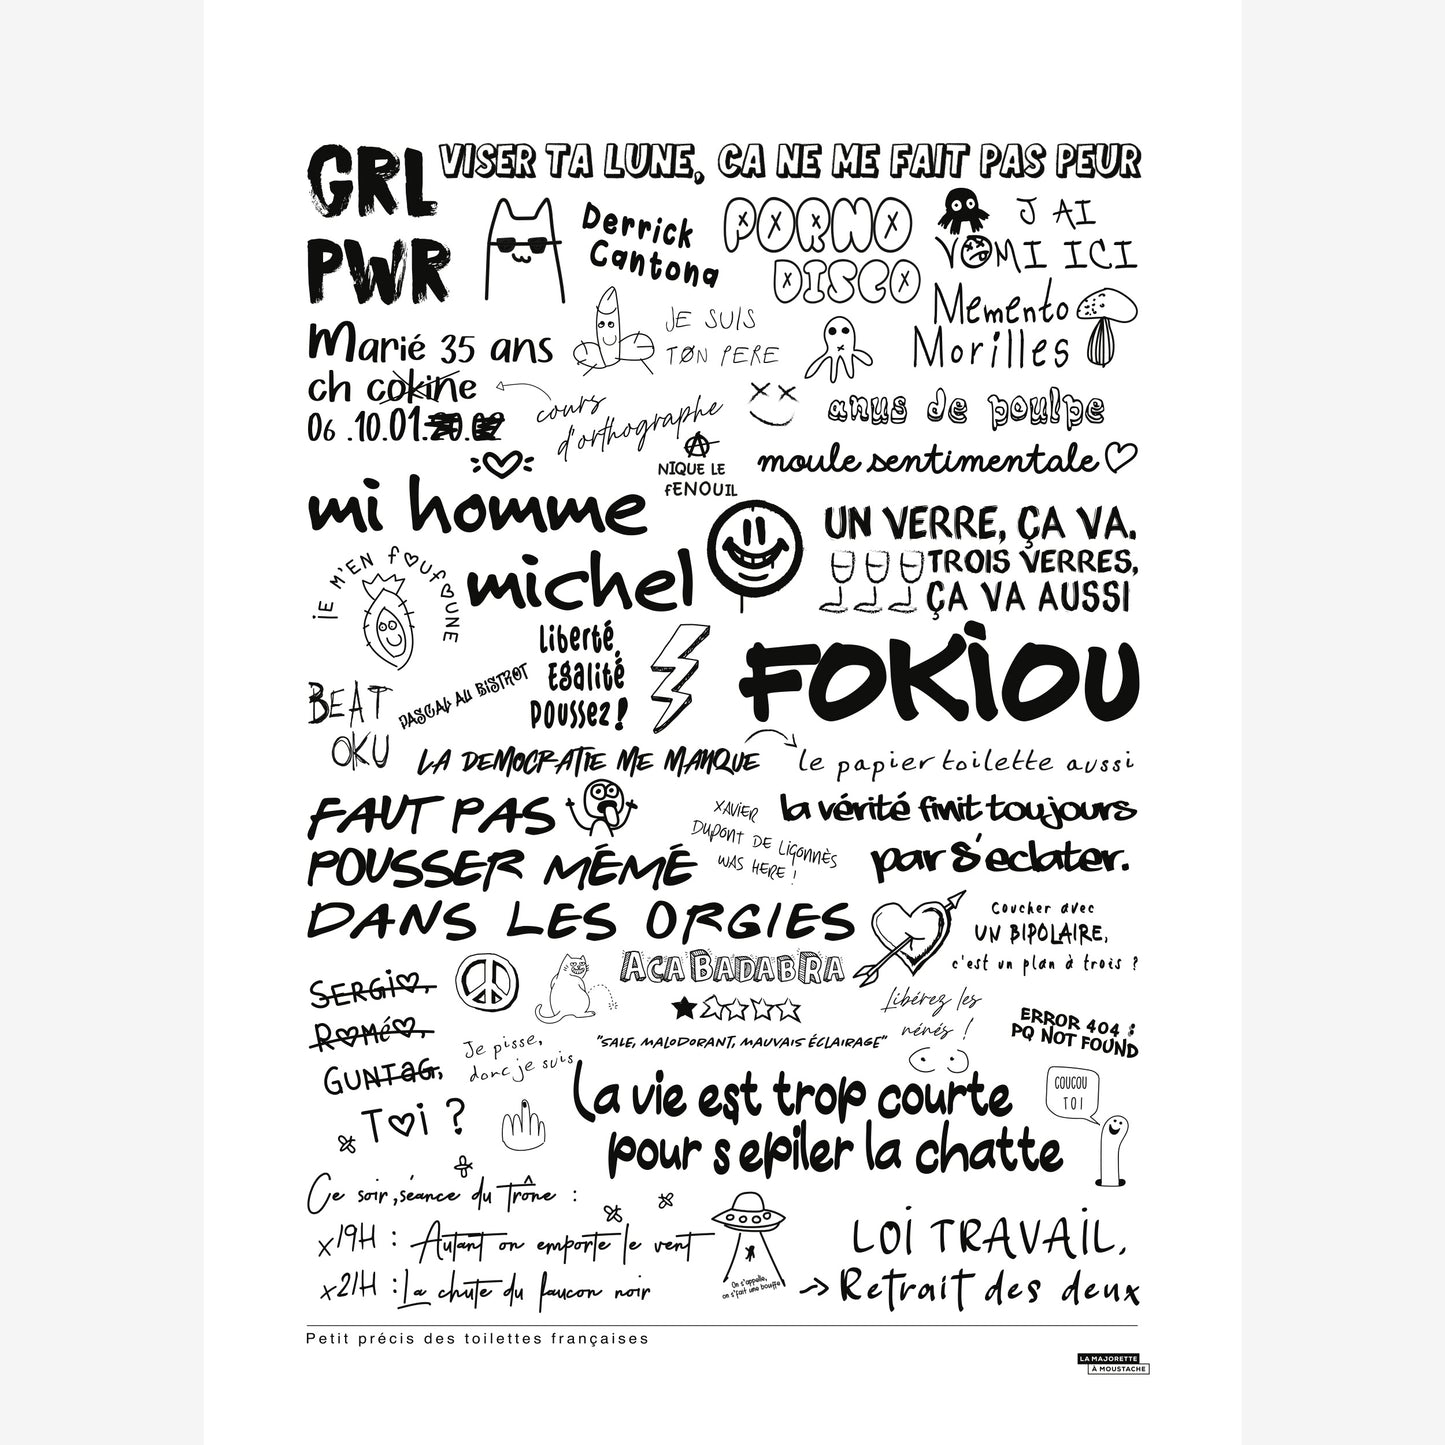 GRL
PWR
VISER TA LUNE, CA NE ME FAIT PAS PEUR
Derrick
Cantona
PORNO
DISCO
J AI
VOMI ICI
Marié 35 ans
ch cokine
06 .10.01.
JE SUIS
TØN PERE
Memento
Morilles
cours
d'orthographe
anus de poulpe
NIQUE LE
fENOUIL
moule sentimentale
mi homme
michel
UN VERRE, ÇA VA.
TROIS VERRES,
ÇA VA AUSSI
JE M'EN fOUfOUNE
liberté,
Egalité
poussez!
FOKIOU
BEAT
OKU
PASCAL AU BISTROT
LA DEMOCRATIE ME MANQUE
le papier toilette aussi
FAUT PAS
POUSSER MÉMÉ
DANS LES ORGIES
XAVIER
DUPONT DE LIGONNÈS
WAS HERE !
la vérité finit toujours
par s'eclater.
Coucher avec
UN BIPOLAIRE,
c'est un plan à trois ?
SERGIO,
ROMÉO,
GUNTAG,
TOI ?
ACABADABRA
"SALE, MALODORANT, MAUVAIS ÉCLAIRAGE"
Libérez les
nénés !
ERROR 404 :
PQ NOT FOUND
Je pisse,
donc je suis
La vie est trop courte
pour s epiler la chatte
COUCOU
TOI
Ce soir, séance du Trône :
x19H : Autant on emporte le vent
x21H : La chute du faucon noir
On s'appelle,
on s'fait une bouffe
LOI TRAVAIL,
-> Retrait des deux
Petit précis des toilettes françaises
LA MAJORETTE
À MOUSTACHE